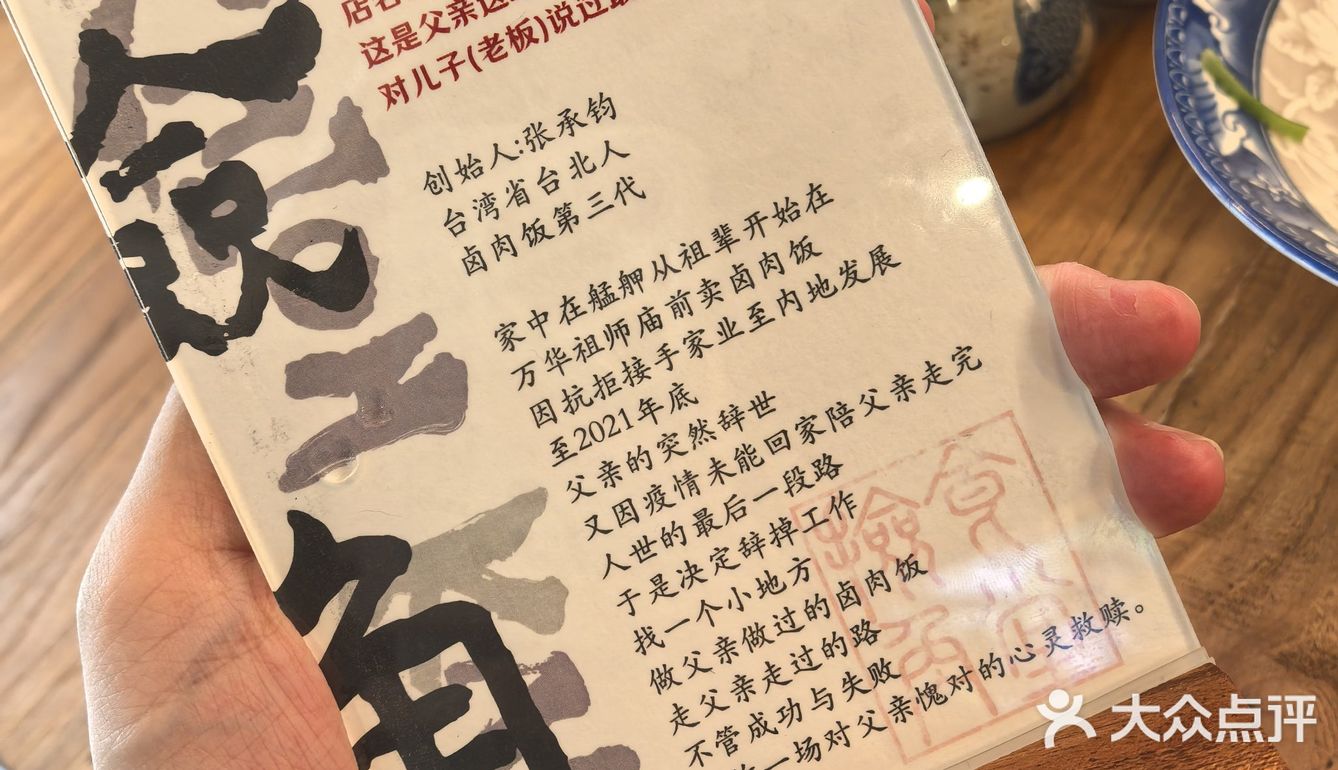 这是父亲
对儿子(老板)说过
创始人:张承钧
台湾省台北人
卤肉饭第三代
家中在艋舺从祖辈开始在
万华祖师庙前卖卤肉饭
因抗拒接手家业至内地发展
至2021年底
父亲的突然辞世
又因疫情未能回家陪父亲走完
人世的最后一段路
于是决定辞掉工作
找一个小地方
做父亲做过的卤肉饭
走父亲走过的路
不管成功与失败
一场对父亲愧对的心灵救赎。
大众点评